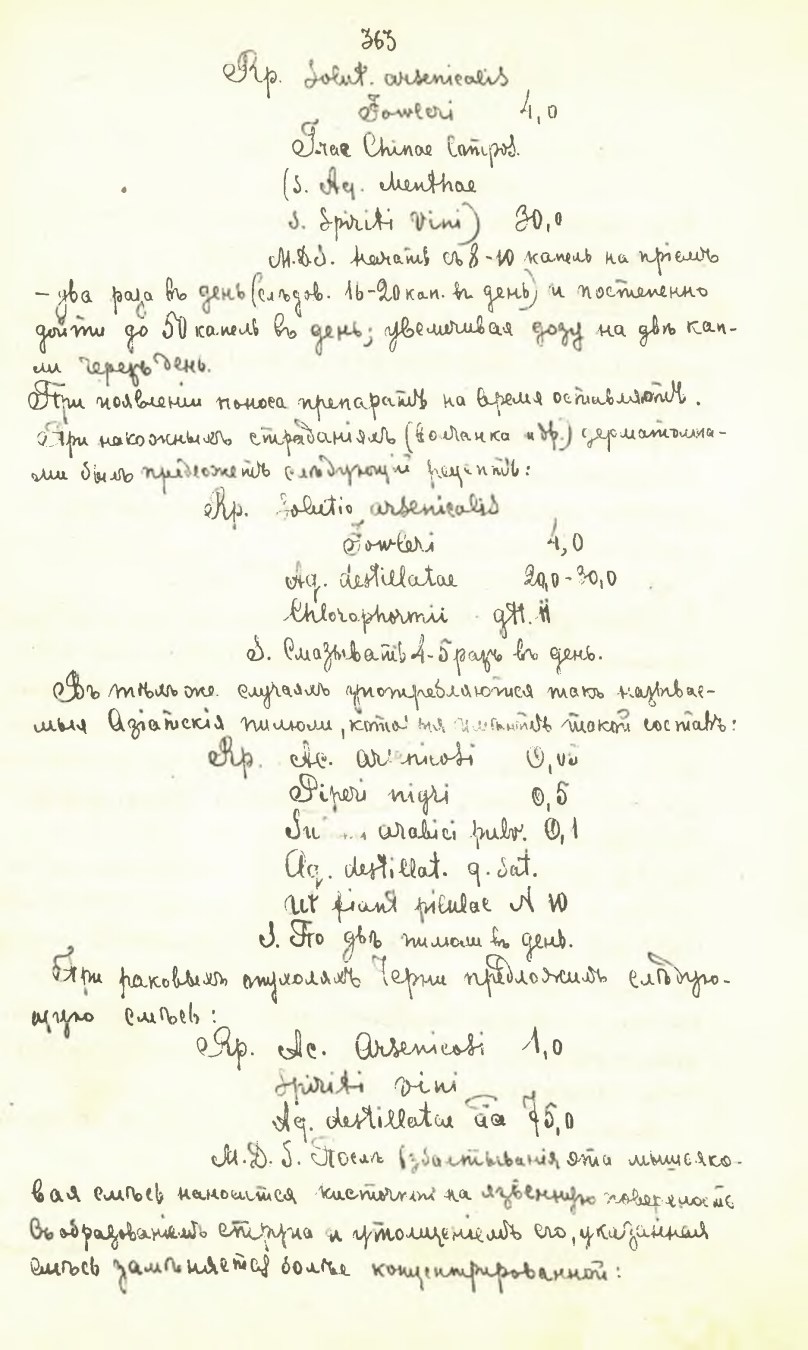 363
Rp. Solut. arsenicalis
Fowleri 4,0
T-rae Chinae Compos.
(S. Aq. Menthae
S. Spiriti Vini) 30,0
M.D.S. Начать съ 8-10 капель на прiемъ
– два раза въ день (слѣдов. 16-20 кап. въ день) и постепенно
дойти до 50 капель въ день; увеличивая дозу на двѣ кап-
ли черезъ день.
При появленiи поноса препаратъ на время оставляютъ.
При накожныхъ страданiяхъ (волчанка и др.) дерматолога-
ми былъ предложенъ слѣдующiй рецептъ:
Rp. Solutio arsenicalis
Fowleri 4,0
Aq. destillatae 20,0-30,0
Chlorophormii gtt. ii
S. Смазывать 4-5 разъ въ день.
Въ тѣхъ же случаяхъ употребляются такъ называе-
мыя Азiатскiя пилюли, которыя имѣютъ такой составъ:
Rp. Ac. arsenicosi
Piperi nigri 0,5
arabici pulv. 0,1
Aq. destillat. q. sat.
Ut fiant pilulae N 10
S. По двѣ пилюли въ день.
При раковыхъ опухоляхъ Черни предложилъ слѣдую-
щую смѣсь:
Rp. Ac. Arsenicosi 1,0
Spiriti vini
Aq. destillatae āā 75,0
M.D.S. Послѣ взбалтыванiя эта мышьяко-
вая смѣсь наносится кисточкой на язвенную поверхность
Съ образованiемъ струпа и утолщенiемъ его, указанная
смѣсь замѣняется болѣе концентрированной: